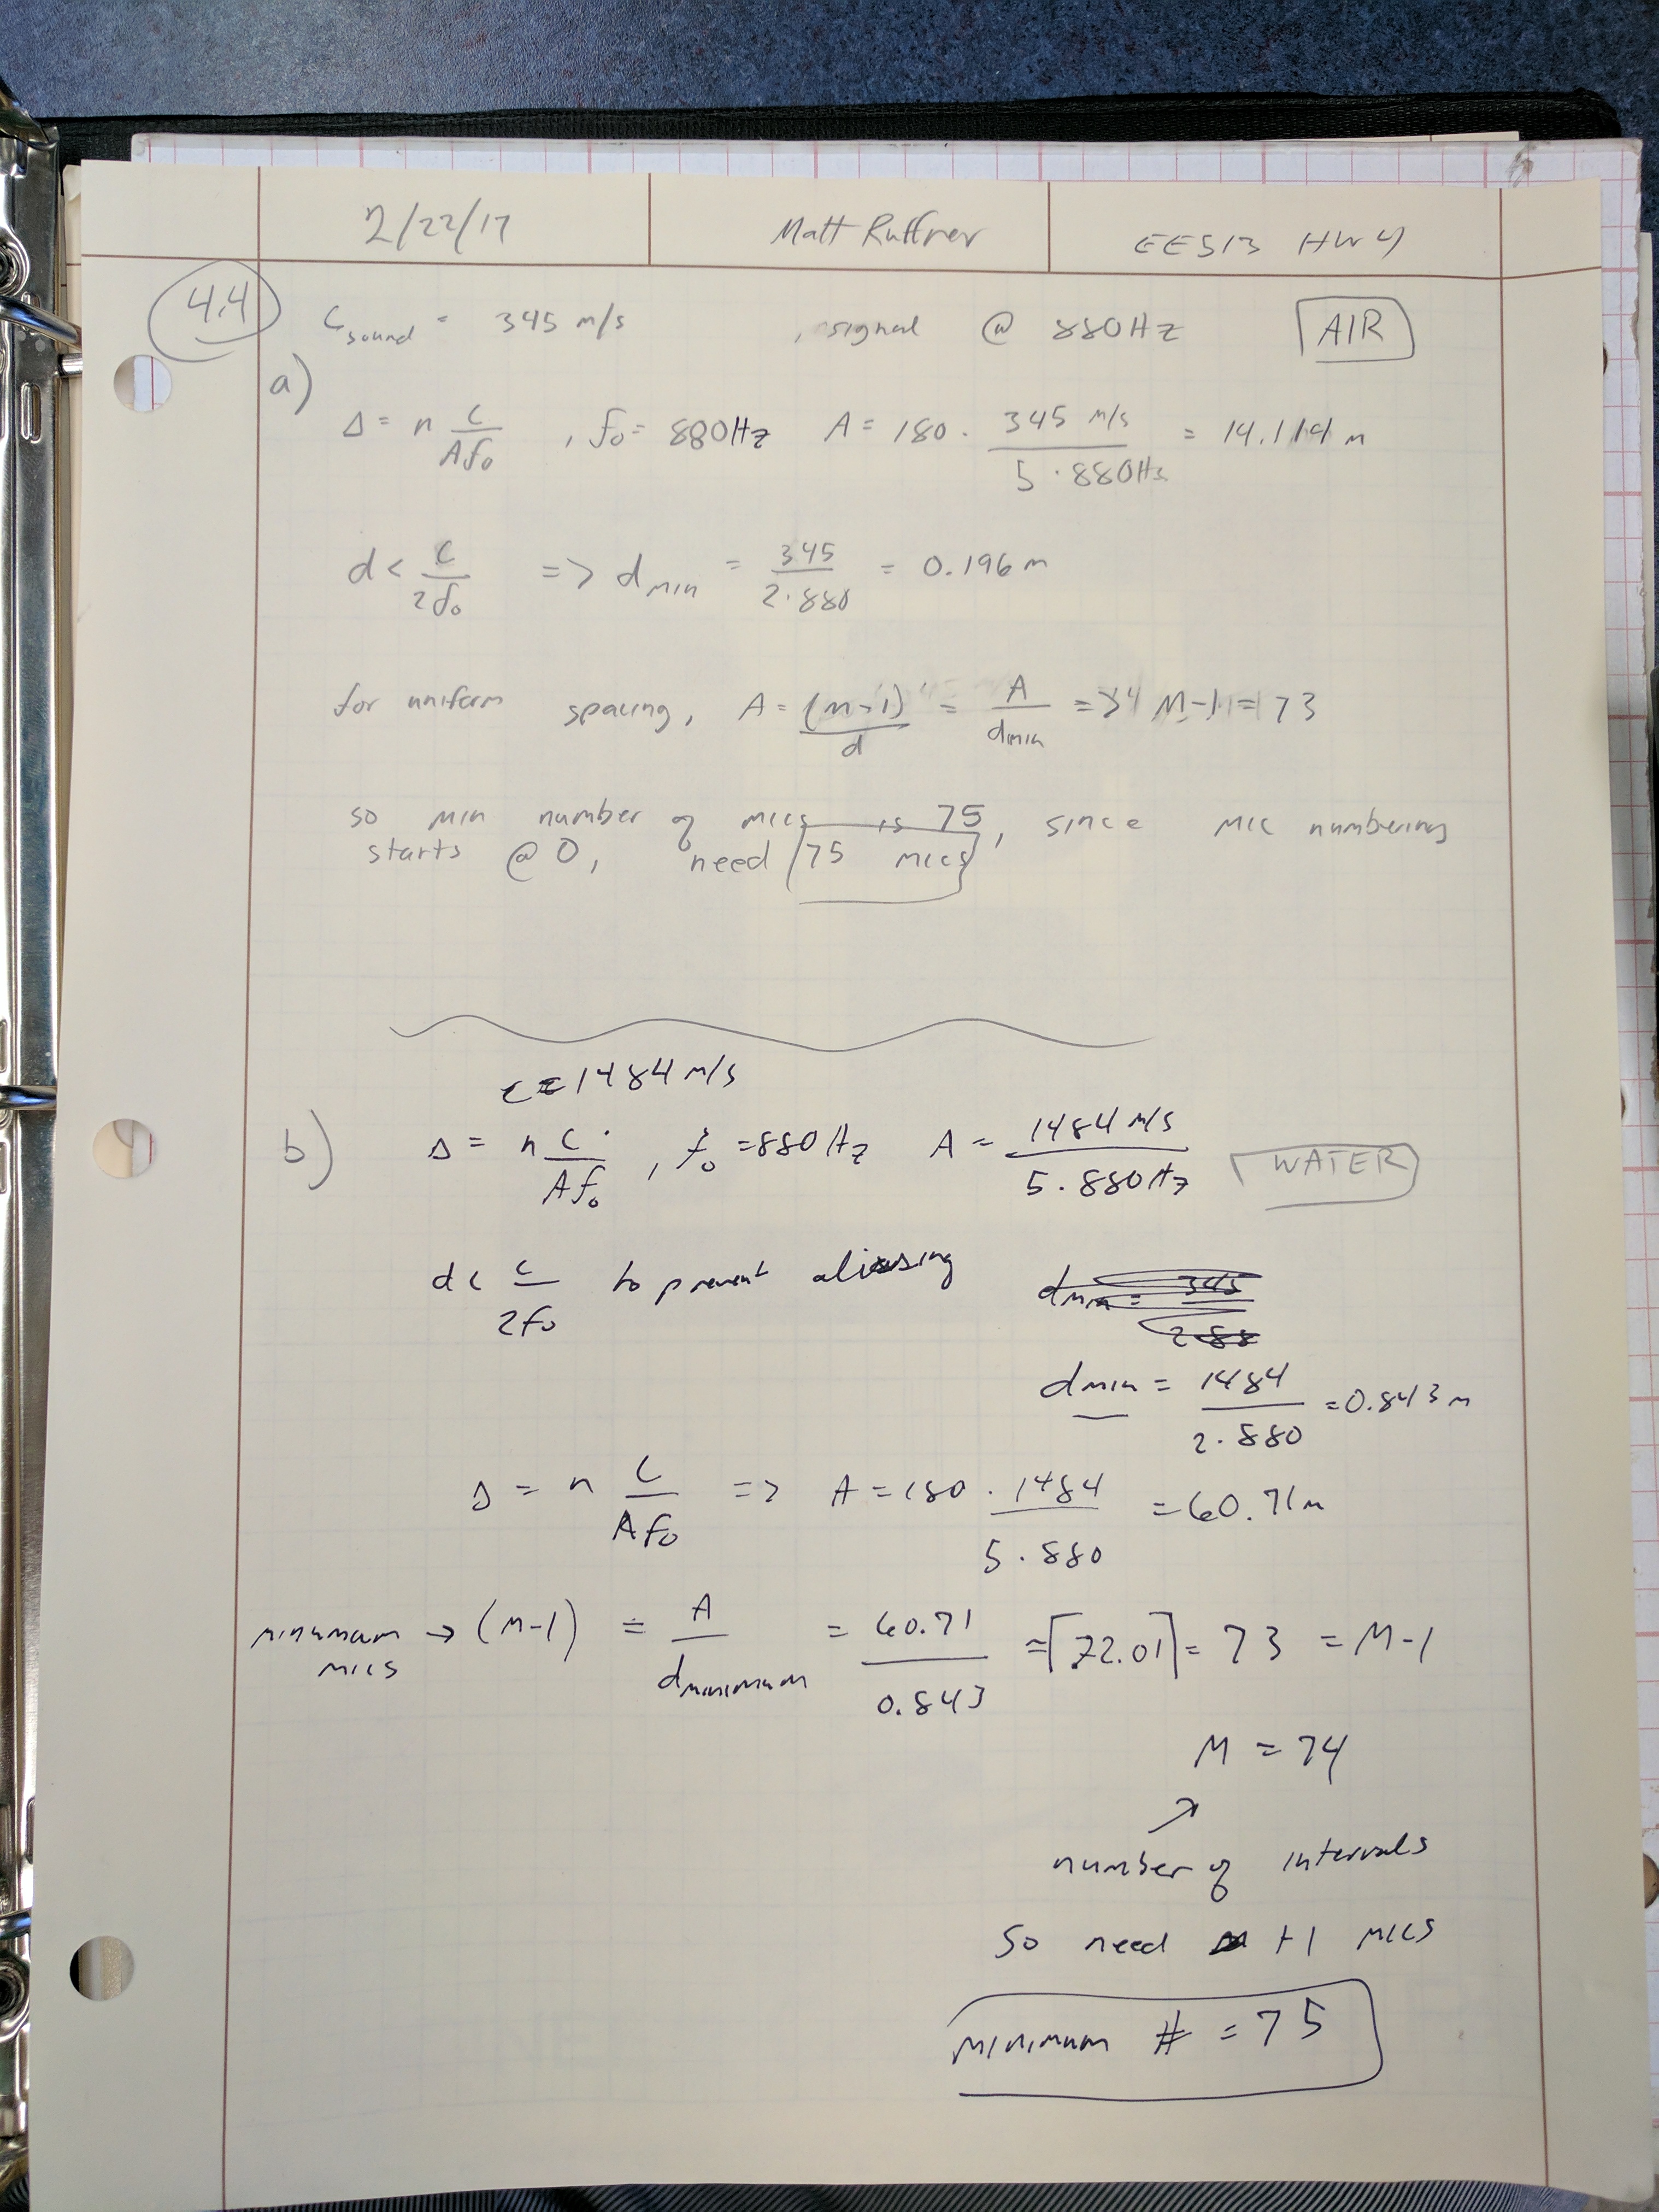 2/22/17 Matt Ruffner EE513 HW 4
4.4 C_sound = 345 m/s , signal @ 880Hz AIR
a)
Δ = n C/(Af₀) , f₀ = 880Hz A = 180 · 345 m/s / (5·880Hz) = 14.114 m
d < C/(2f₀) => d_min = 345/(2·880) = 0.196 m
for uniform spacing, A = (m-1)/d = A/d_min = M-1 = 73
so min number of mics is 75, since mic numbering
starts @ 0, need 75 mics
c = 1484 m/s
b) Δ = n C/(Af₀) , f₀ = 880 Hz A = 1484 m/s / (5·880Hz) WATER
d < c/(2f₀) to prevent aliasing d_min = 345/(2·88
d_min = 1484/(2·880) = 0.843 m
Δ = n C/(Af₀) => A = 180 · 1484/(5·880) = 60.71 m
minumum mics → (M-1) = A/d_minimum = 60.71/0.843 = ⌈72.01⌉ = 73 = M-1
M = 74
↗
number of intervals
So need M +1 mics
minimum # = 75